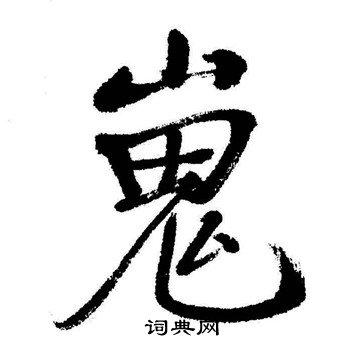 嵬
词典网